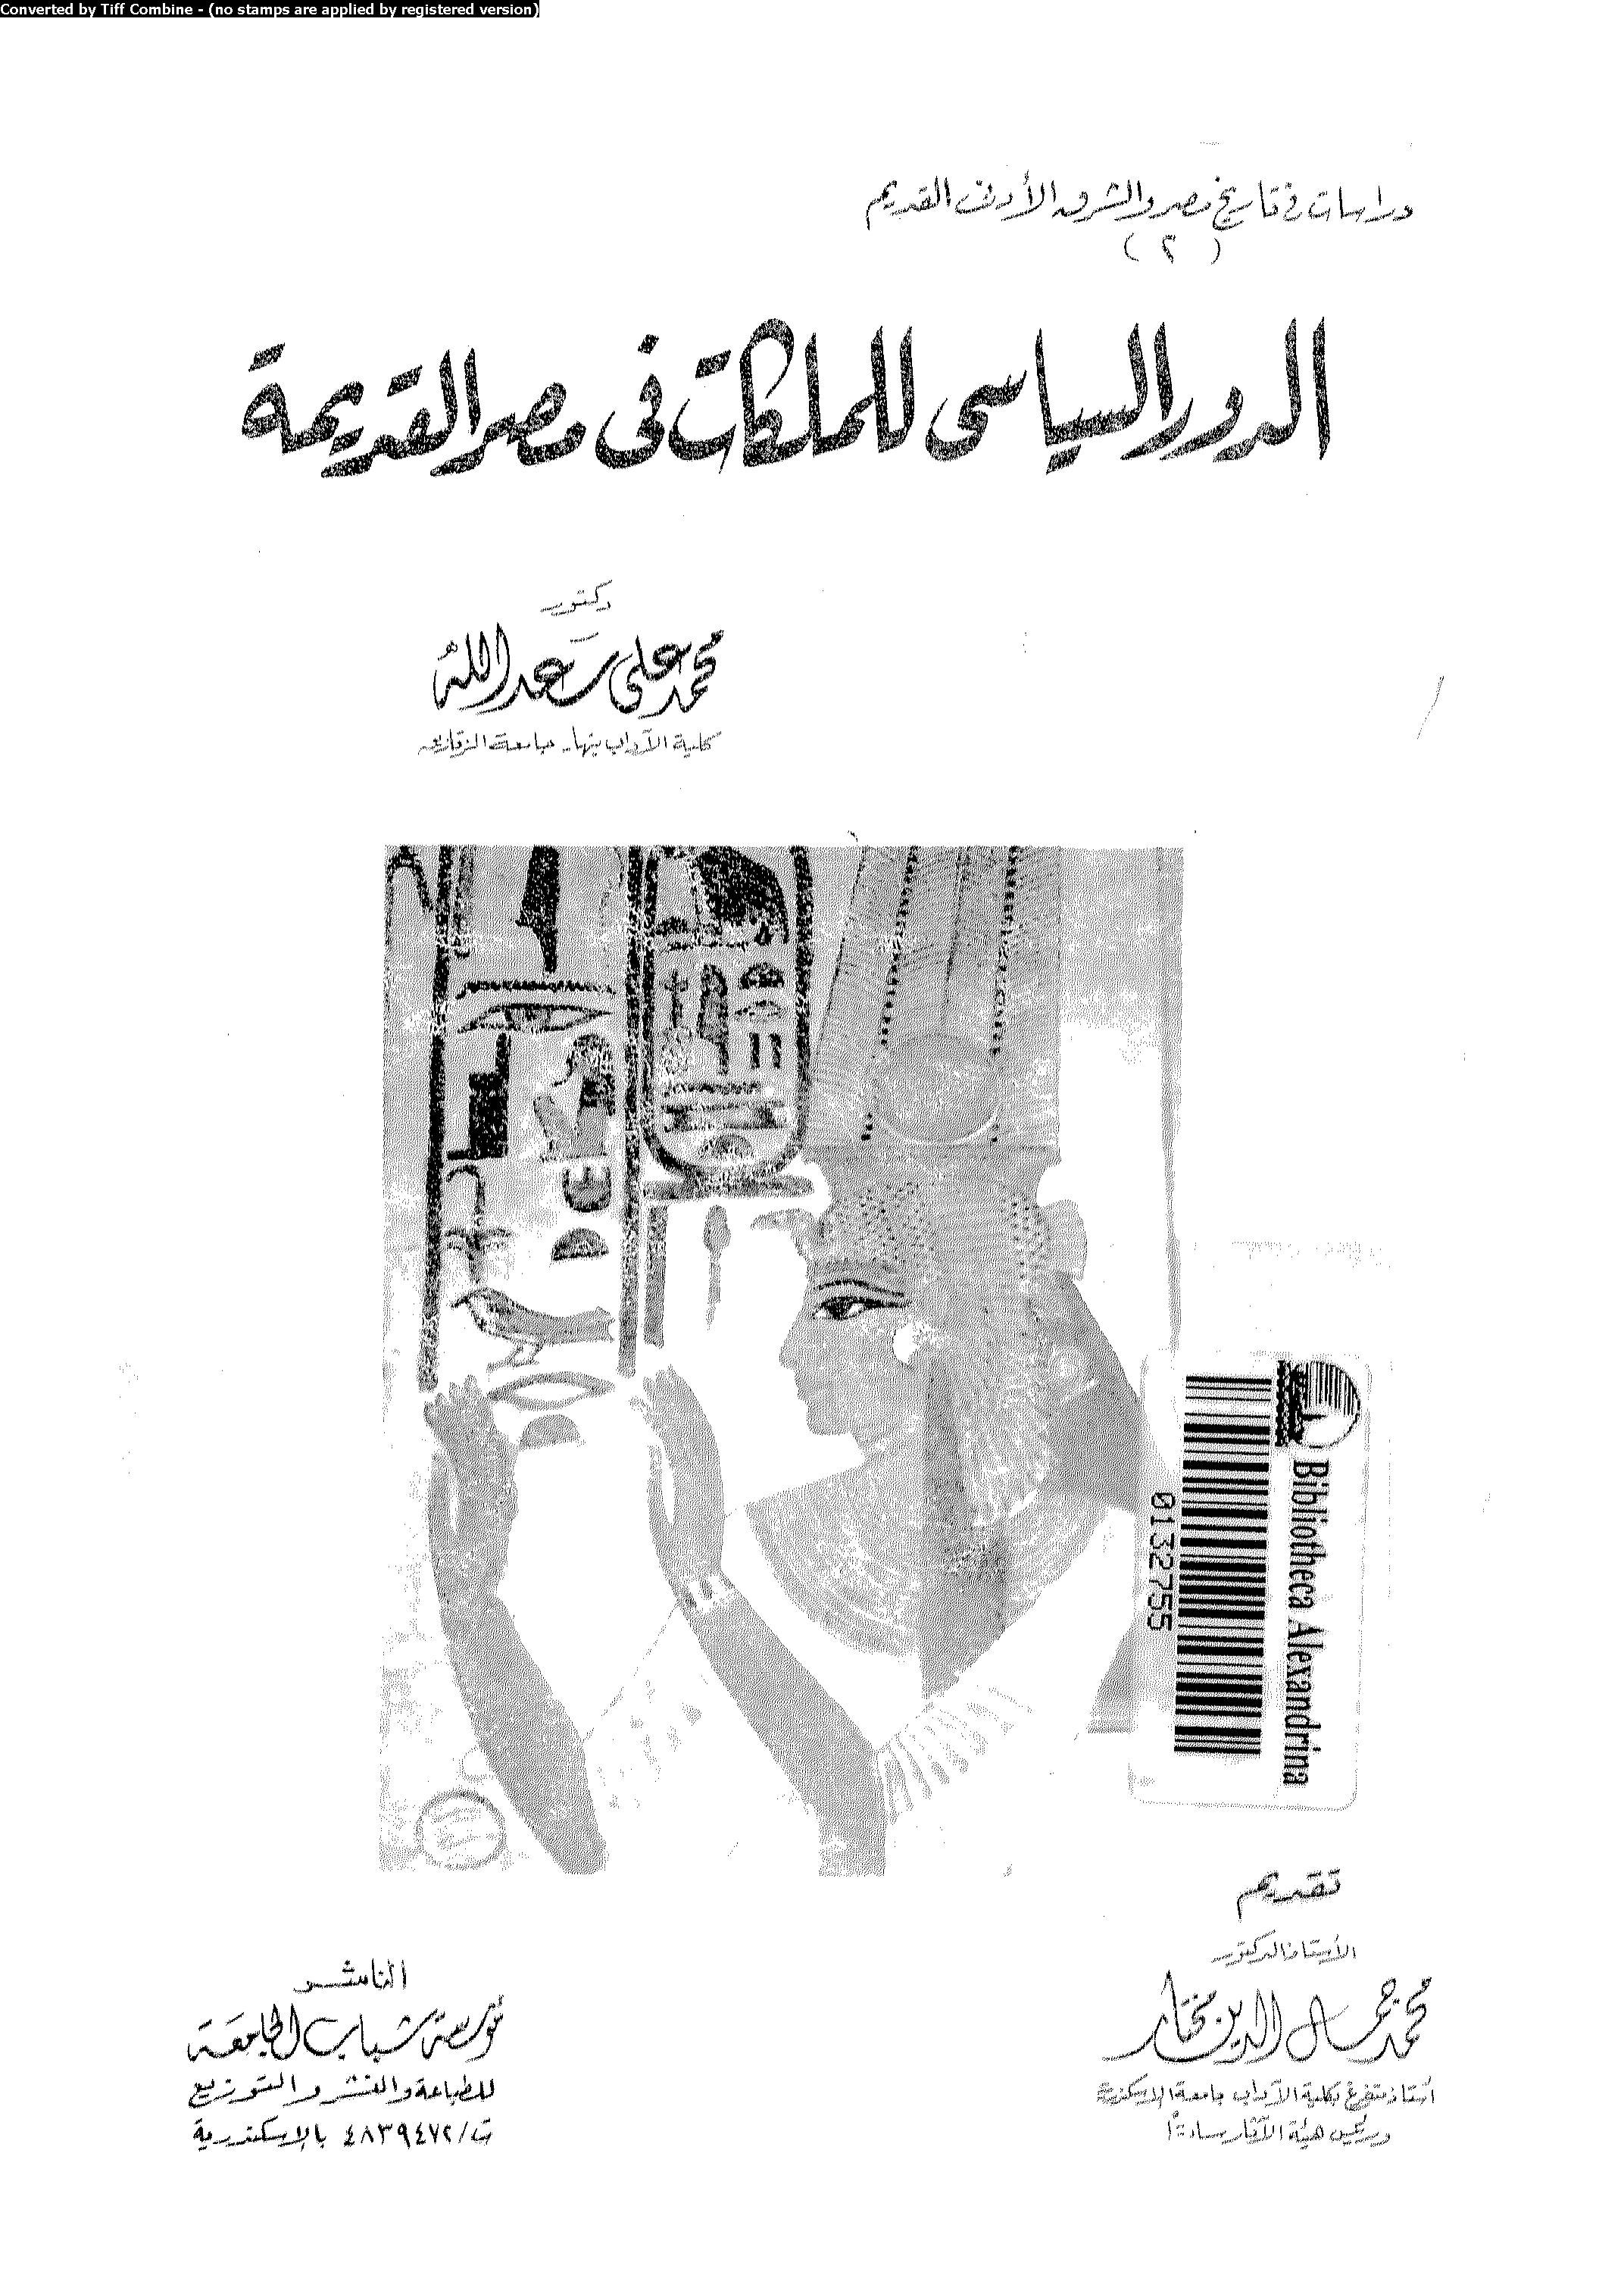 Converted by Tiff Combine - (no stamps are applied by registered version)
دراسات فى تاريخ مصر والشرق الأدنى القديم
( ٢ )
الدور السياسى للملكات فى مصر القديمة
دكتور
محمد على سعد الله
كلية الآداب ببنها - جامعة الزقازيق
Bibliotheca Alexandrina
0132755
تقديم
الأستاذ الدكتور
محمد جمال الدين مختار
أستاذ متفرغ بكلية الآداب جامعة الإسكندرية
ورئيس هيئة الآثار سابقاً
الناشر
مؤسسة شباب الجامعة
للطباعة والنشر والتوزيع
ت/ ٤٨٣٩٤٧٢ بالإسكندرية